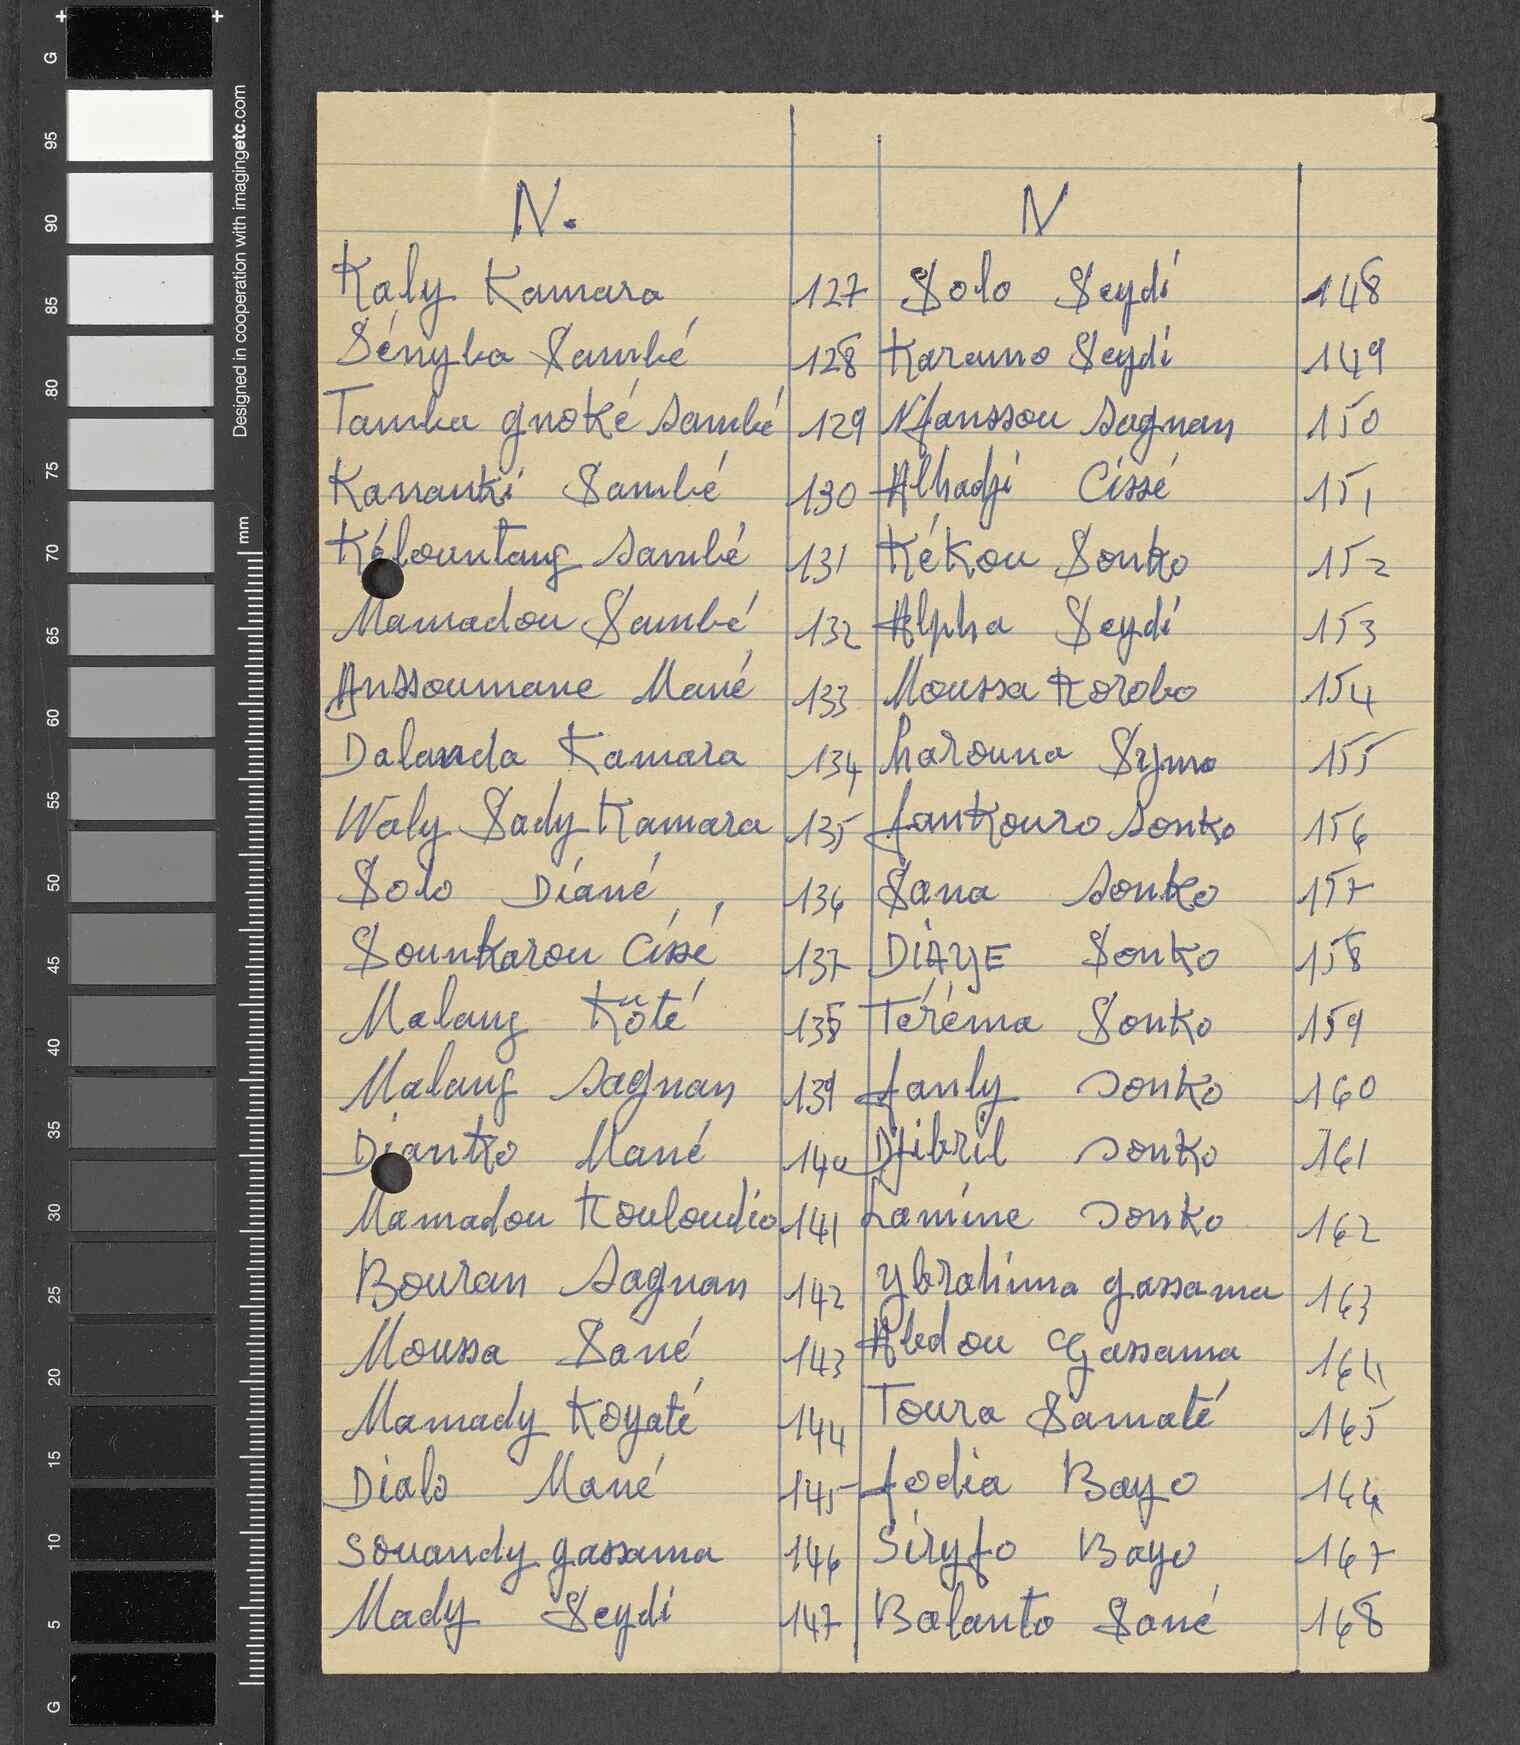 N. N
Kaly Kamara 127 Solo Seydi 148
Sényba Sambé 128 Karamo Seydi 149
Tamba gnoké Sambé 129 Nfanssou Sagnan 150
Kananki Sambé 130 Alhadji Cissé 151
Kélountang Sambé 131 Kékou Sonko 152
Mamadou Sambé 132 Alpha Seydi 153
Anssoumane Mané 133 Moussa Korobo 154
Dalanda Kamara 134 harouna Symo 155
Waly Sady Kamara 135 fankouro Sonko 156
Solo Diané 136 Sana Sonko 157
Sounkarou Cissé 137 DIAYE Sonko 158
Malang Köté 138 Téréma Sonko 159
Malang Sagnan 139 fanly Sonko 160
Dianko Mané 140 Djibril Sonko 161
Mamadou Kouloudio 141 Lamine Sonko 162
Bouran Sagnan 142 Ybrahima gassama 163
Moussa Sané 143 Abdou Gassama 164
Mamady Koyaté 144 Toura Samaté 165
Dialo Mané 145 fodia Bayo 166
Souandy gassama 146 Siryfo Bayo 167
Mady Seydi 147 Balanto Sané 168
G 95 90 85 80 75 70 65 60 55 50 45 40 35 30 25 20 15 10 5 G
Designed in cooperation with imagingetc.com
mm